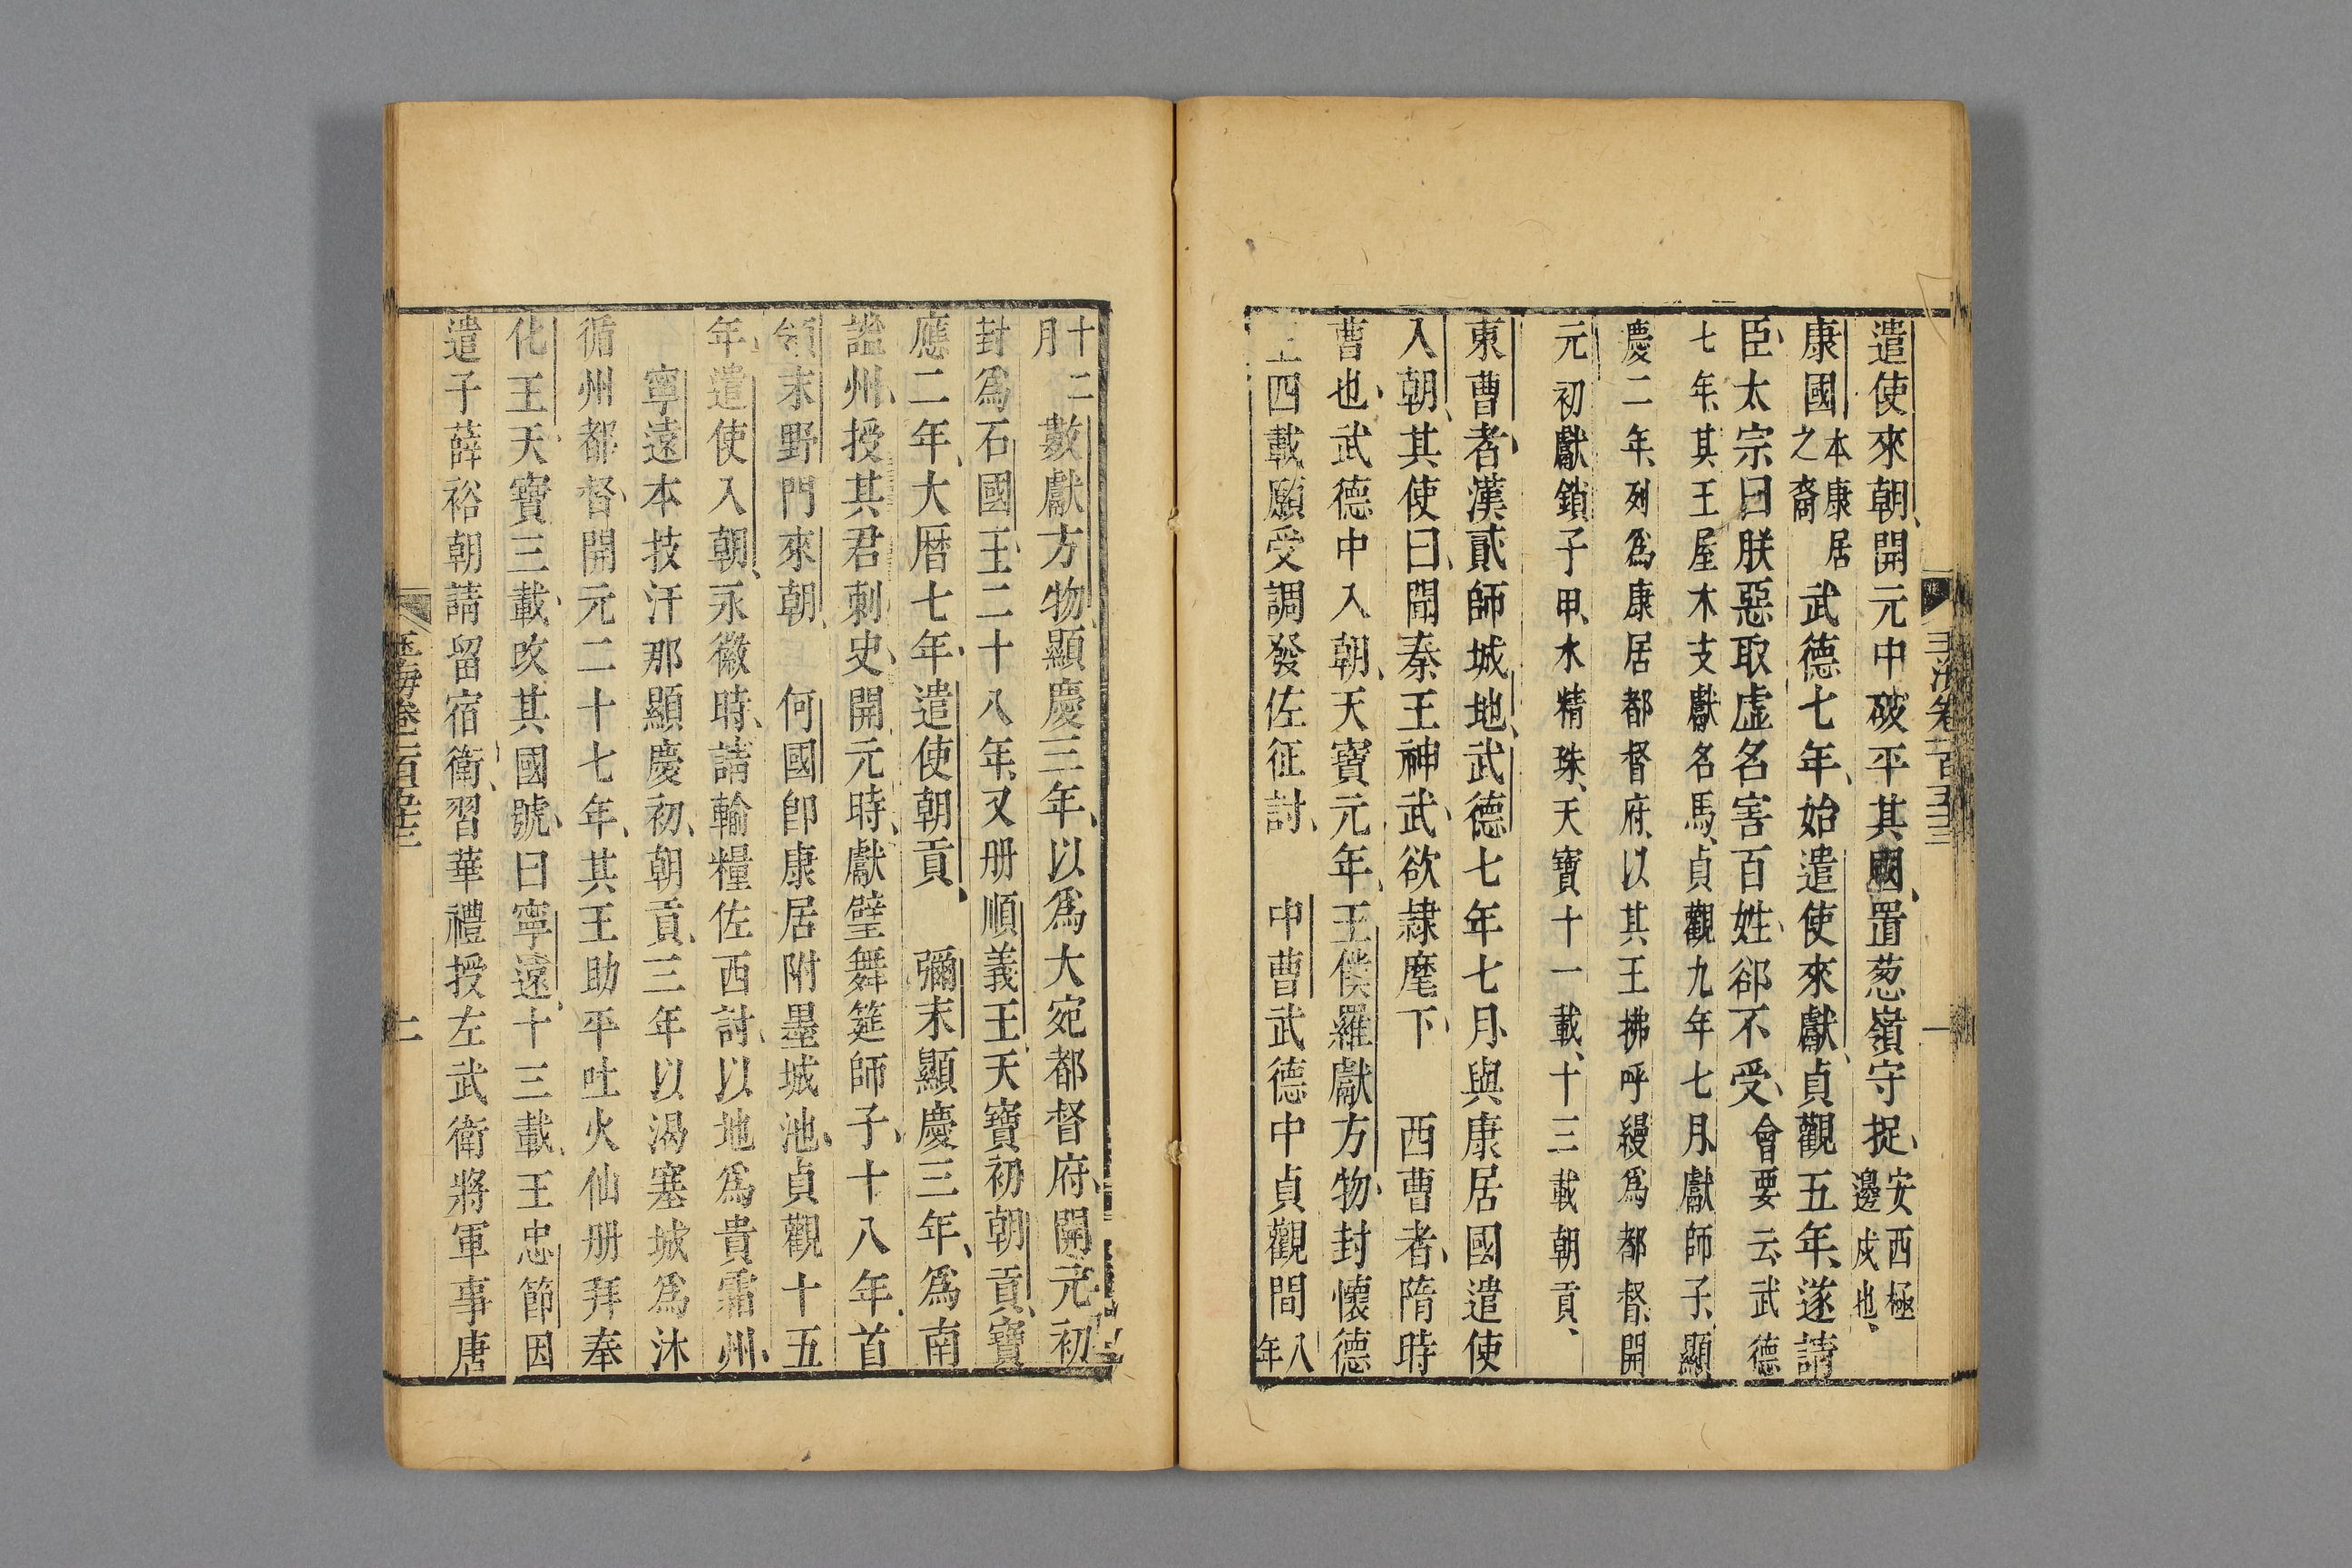 遣使來朝開元中破平其國置葱嶺守捉安西極邊戍也
康國本康居之裔武德七年始遣使來獻貞觀五年遂請
臣太宗曰朕惡取虛名害百姓郤不受會要云武德
七年其王屋木支獻名馬貞觀九年七月獻師子顯
慶二年列爲康居都督府以其王拂呼縵爲都督開
元初獻鎖子甲水精珠天寶十一載十三載朝貢
東曹者漢貳師城地武德七年七月與康居國遣使
入朝其使曰聞秦王神武欲隷麾下　西曹者隋時
曹也武德中入朝天寶元年王僕羅獻方物封懷德
王四載願受調發佐征討　中曹武德中貞觀間八年
十二月數獻方物顯慶三年以爲大宛都督府開元初
封爲石國王二十八年又册順義王天寶初朝貢寶
應二年大曆七年遣使朝貢　彌末顯慶三年爲南
謐州授其君刺史開元時獻璧舞筵師子十八年首
領末野門來朝　何國卽康居附墨城池貞觀十五
年遣使入朝永徽時請輸糧佐西討以地爲貴霜州
寧遠本技汗那顯慶初朝貢三年以渴塞城爲沐
循州都督開元二十七年其王助平吐火仙册拜奉
化王天寶三載改其國號曰寧遠十三載王忠節因
遣子薛裕朝請留宿衛習華禮授左武衛將軍事唐
玉海卷一百五十三
二